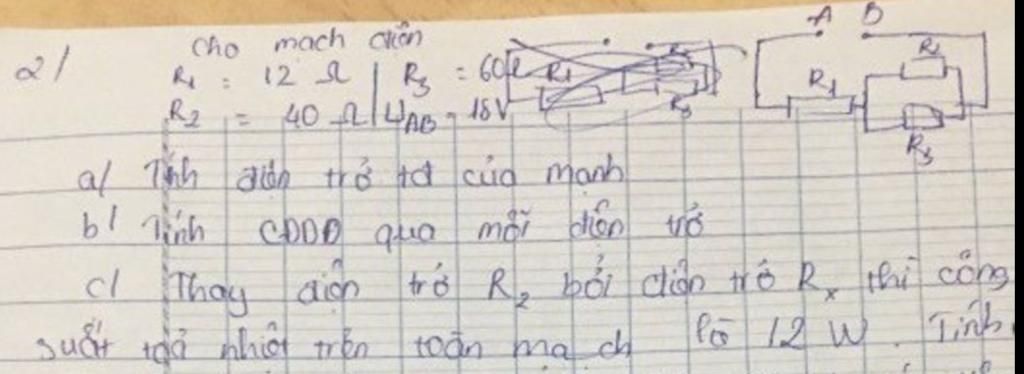 2/ Cho mạch điện
R₁ = 12 Ω | R₃ = 60Ω
R₂ = 40 Ω | U_AB = 18V
A B
R₁ R₂
R₃
a/ Tính điện trở tđ của mạnh
b/ Tính CDDD qua mỗi điện trở
c/ Thay điện trở R₂ bởi điện trở Rₓ thì công
suất toả nhiệt trên toàn mạch là 12 W. Tính